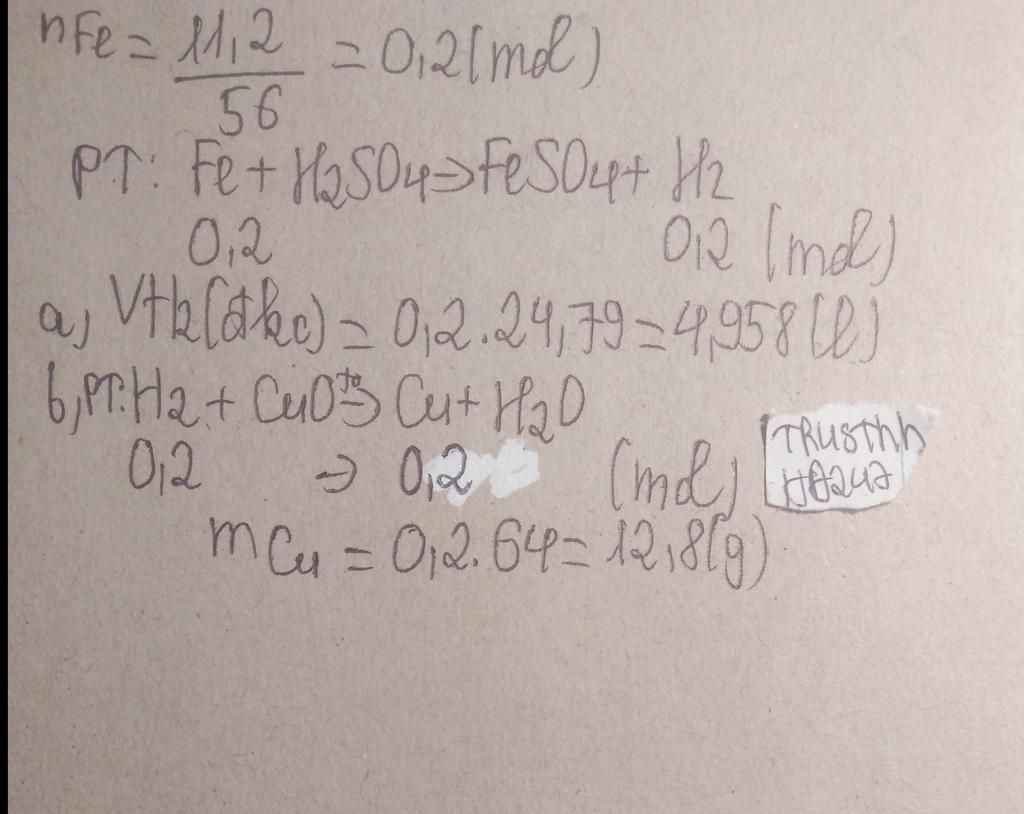 nFe = 11,2 / 56 = 0,2 (mol)
PT: Fe + H2SO4 → FeSO4 + H2
0,2 0,2 (mol)
a, VH2(đkc) = 0,2.24,79 = 4,958 (l)
b, PT: H2 + CuO t° → Cu + H2O
0,2 → 0,2 (mol)
mCu = 0,2.64 = 12,8 (g)